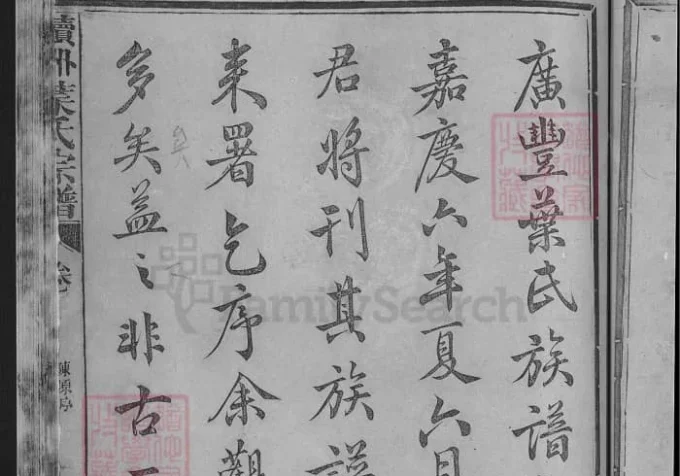 廣豐葉氏族譜
嘉慶六年夏六月
君將刊其族譜
来署乞序余觀
多矣益之非古
葉氏宗譜
FamilySearch